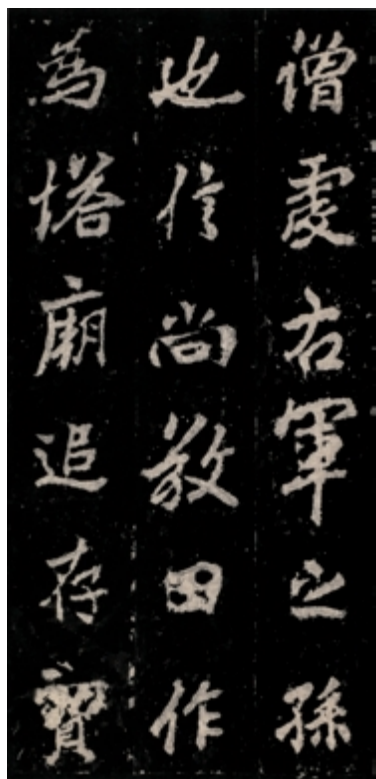 僧虔右軍之孫
也信尚教因作
為塔廟追存寶